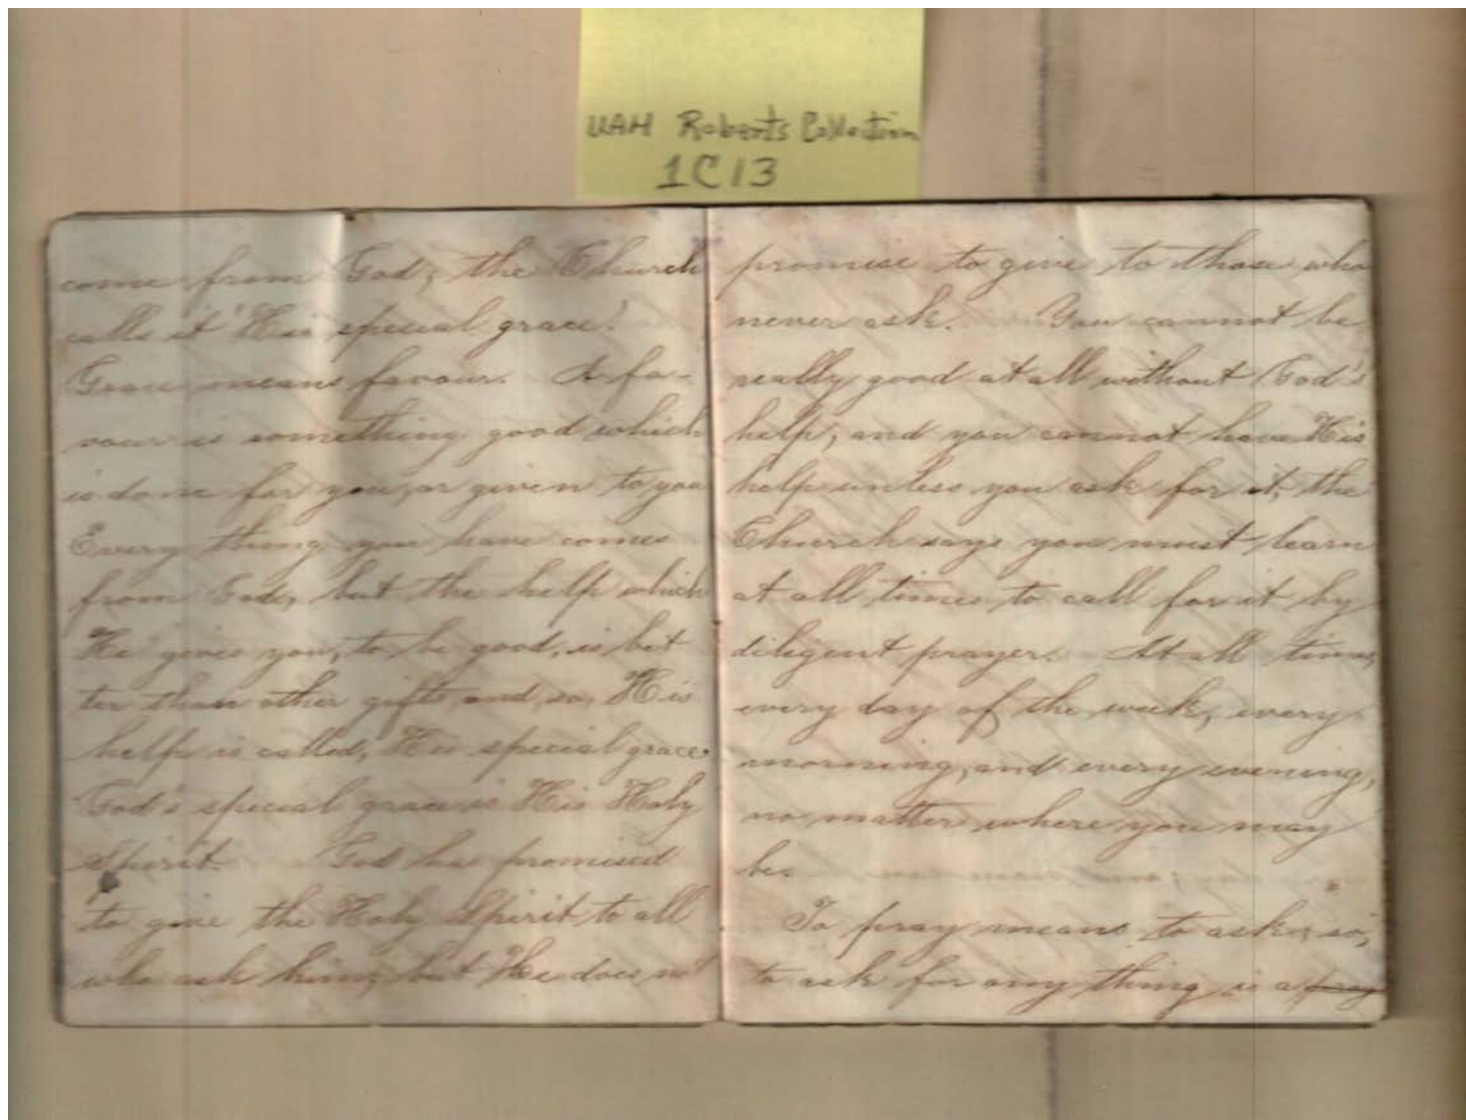 UAH Roberts Collection
1C13
come from God; the Church
calls it 'His special grace.'
Grace means favour. A fa-
vour is something good which
is done for you, or given to you
Every thing you have comes
from God, but the help which
He gives you, to be good, is bet
ter than other gifts, and, so, His
help is called, His special grace.
God's special grace is His Holy
Spirit. God has promised
to give the Holy Spirit to all
who ask him; but He does not
promise to give to those who
never ask. You cannot be
really good at all without God's
help, and you cannot have His
help unless you ask for it, the
Church says you must learn
at all times to call for it by
diligent prayer. At all times,
every day of the week, every
morning, and every evening,
no matter where you may
be.
To pray means to ask; so,
to ask for any thing is a pray